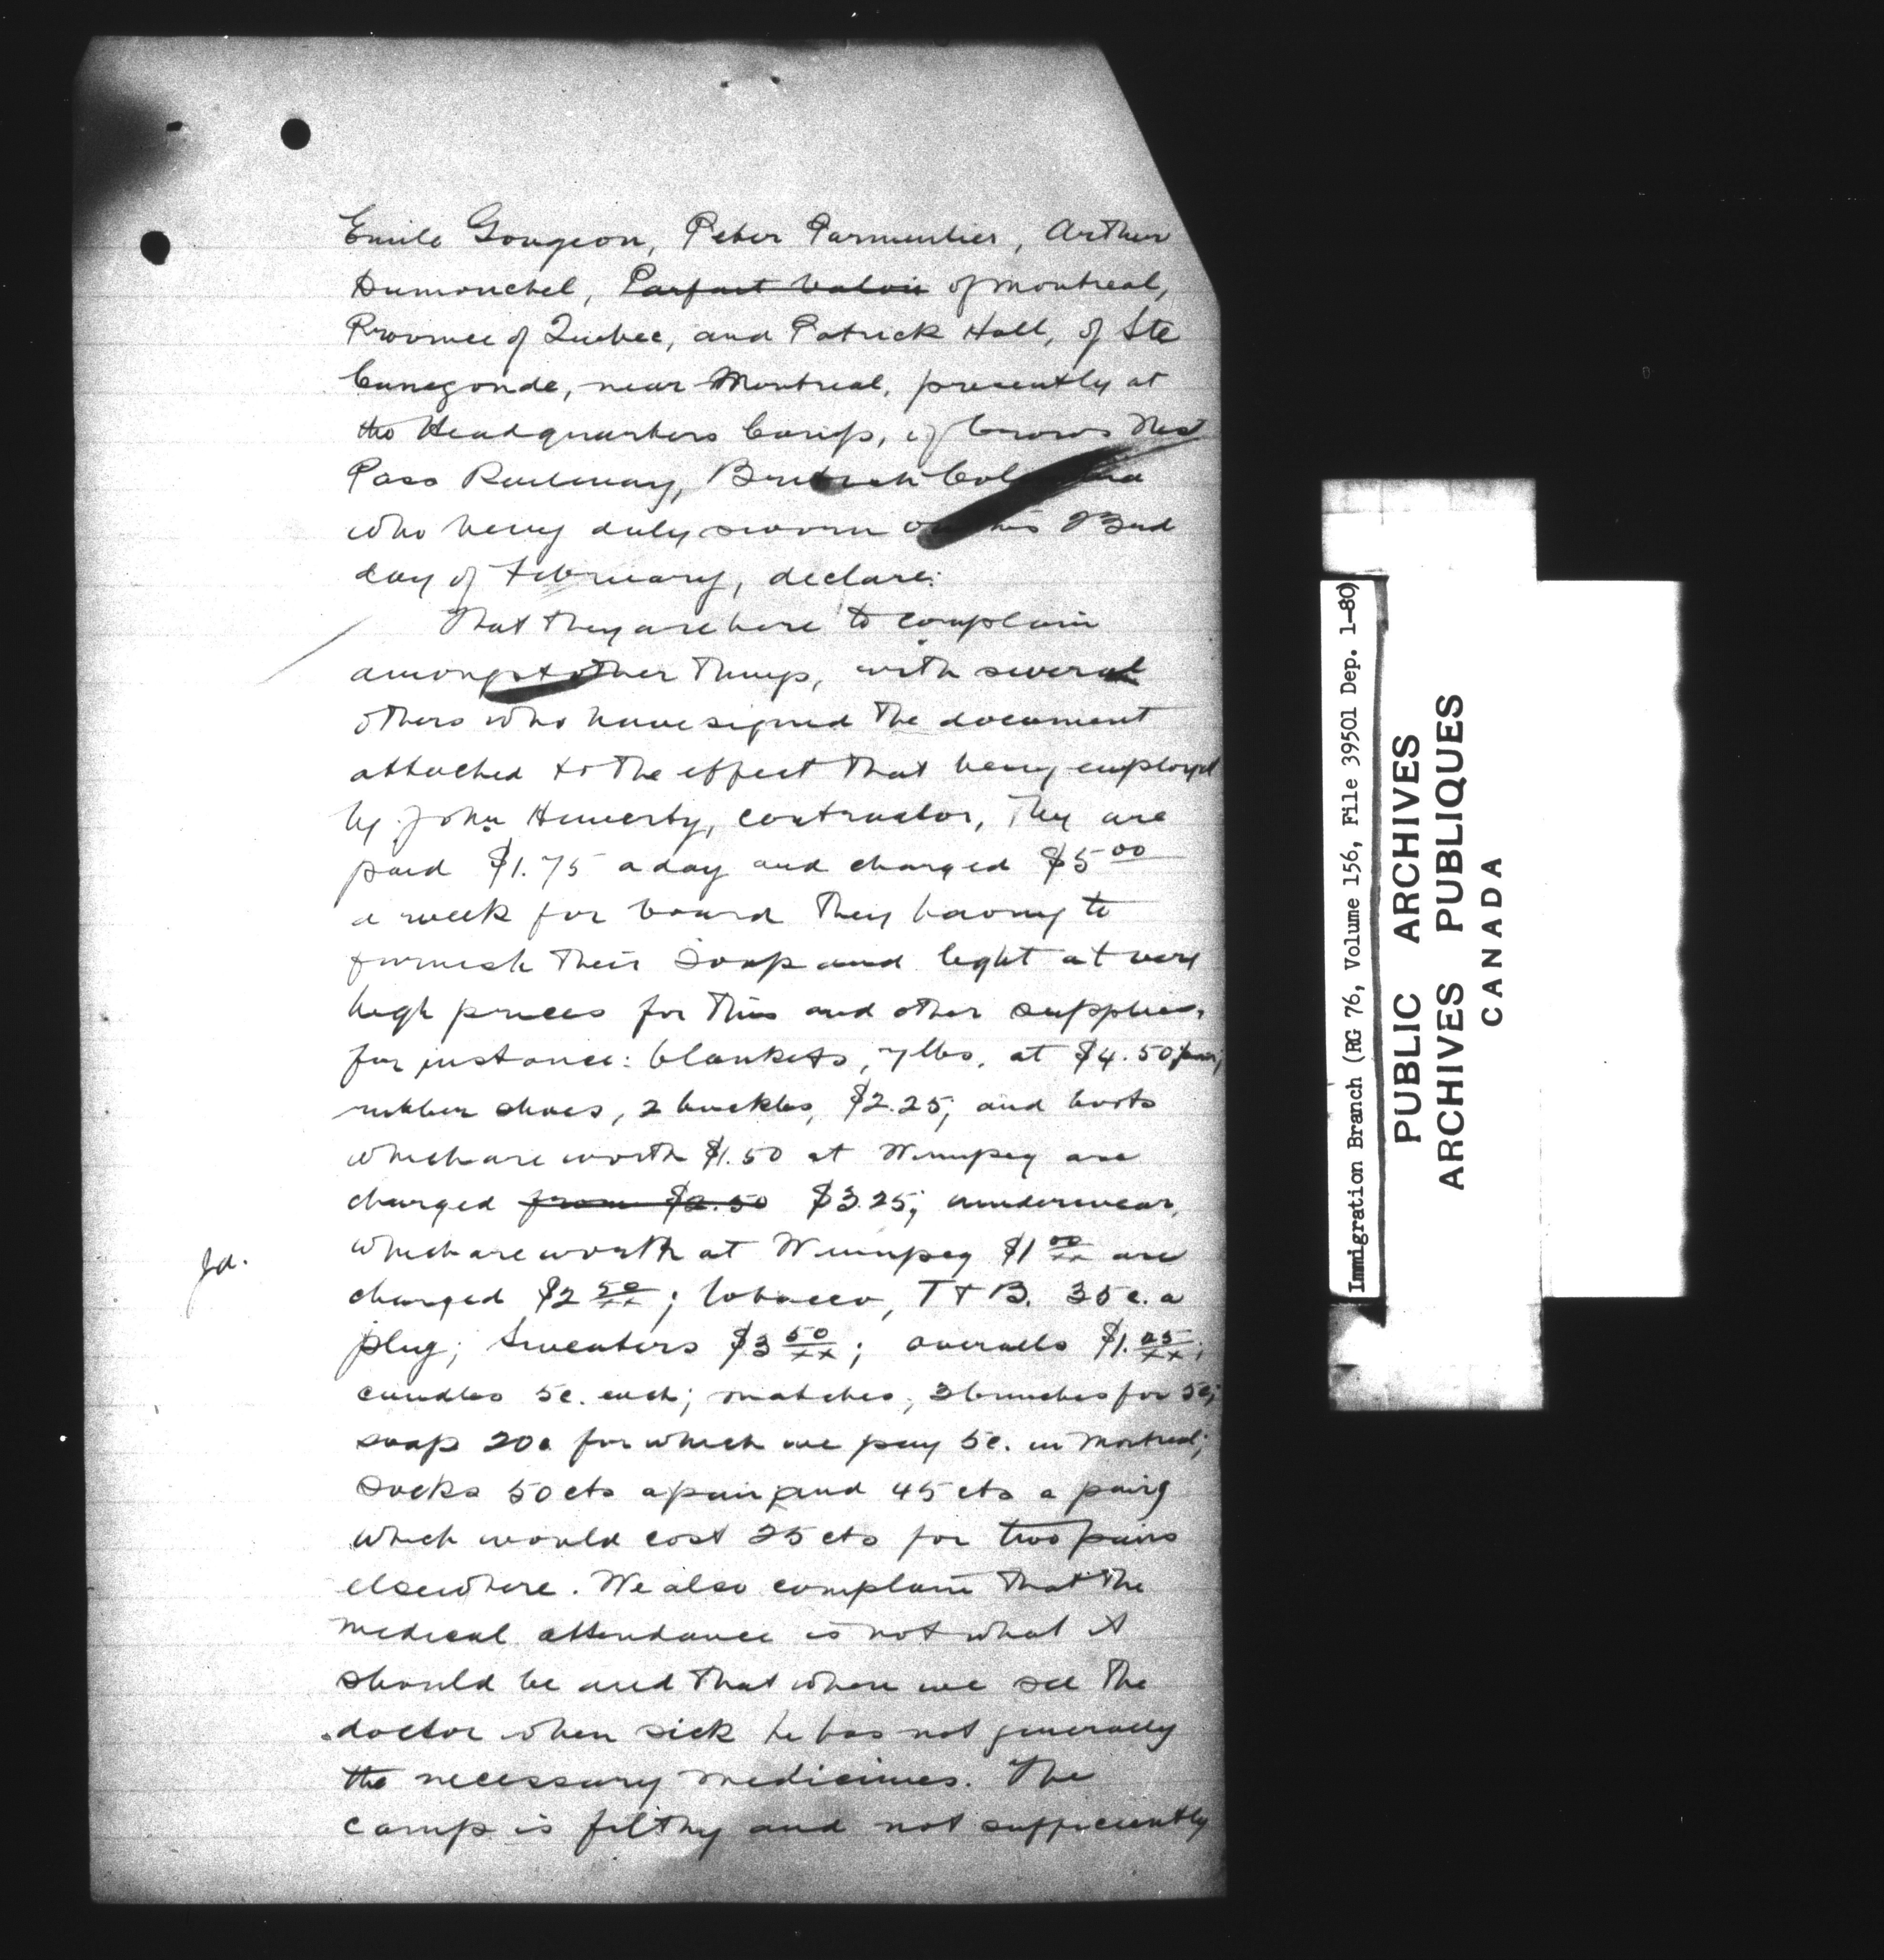 Emile Gougeon, Peter Parmentier, Arthur
Dumouchel, Parfait Valois of Montreal,
Province of Quebec, and Patrick Hall, of Ste
Cunegonde, near Montreal, presently at
the Headquarters Camp, of Crows Nest
Pass Railway, British Columbia
who being duly sworn on this 23rd
day of February, declare:
That they are here to complain
amongst other things, with several
others who have signed the document
attached to the effect that being employed
by John, contractor, they are
paid $1.75 a day and charged $5 00
a week for board they having to
furnish their soap and light at very
high prices for this and other supplies,
for instance: blankets, 7 lbs. at $4.50 pair;
rubber shoes, 2 buckles, $2.25; and boots
which are worth $1.50 at Winnipeg are
charged from $2.50 $3.25; underwear,
which are worth at Winnipeg $1 00/xx are
Jd.
charged $2 50/xx; tobacco, T & B. 35 c. a
plug; sweaters $3 50/xx; overalls $1. 25/xx;
candles 5c. each; matches, 3 bunches for 5c;
soap 20c for which we pay 5c. in Montreal;
socks 50 cts a pair and 45 cts a pair
which would cost 25 cts for two pairs
elsewhere. We also complain that the
medical attendance is not what it
should be and that when we see the
doctor when sick he has not generally
the necessary medicines. The
camp is filthy and not sufficiently
Immigration Branch (RG 76, Volume 156, File 39501 Dep. 1-80)
PUBLIC ARCHIVES
ARCHIVES PUBLIQUES
CANADA